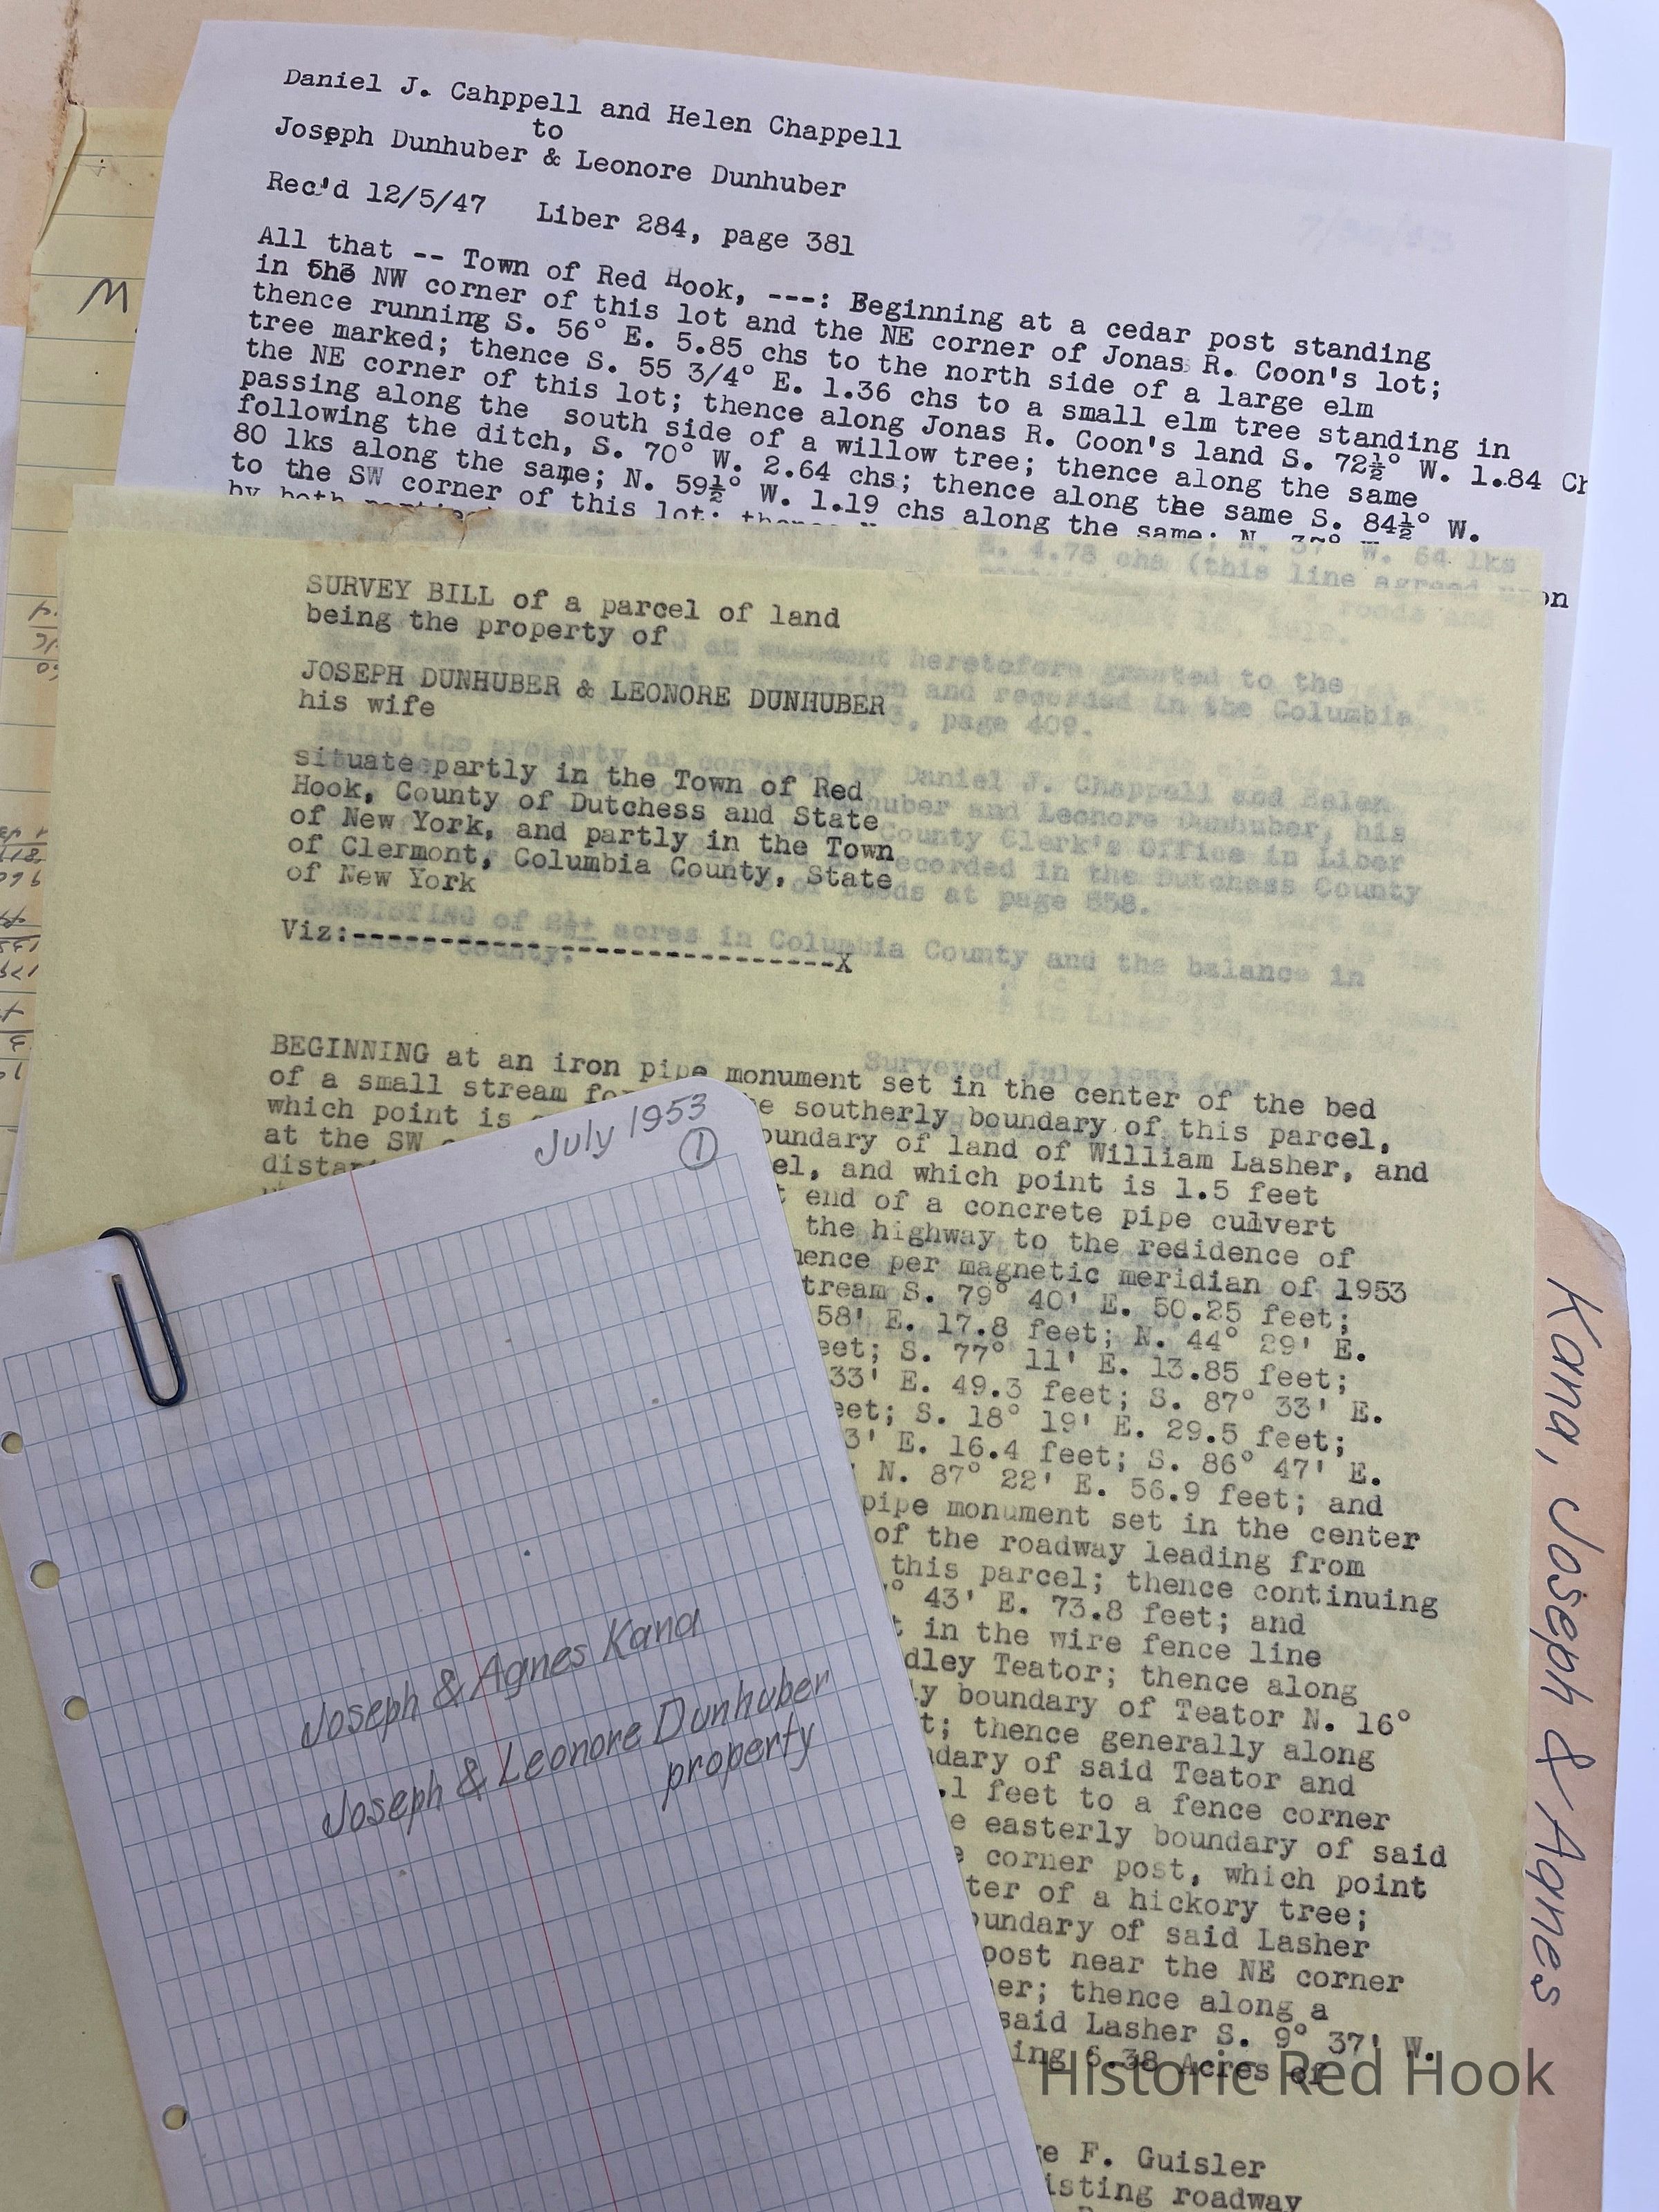 Daniel J. Cahppell and Helen Chappell
to
Joseph Dunhuber & Leonore Dunhuber
Rec'd 12/5/47 Liber 284, page 381
All that -- Town of Red Hook, ---: Beginning at a cedar post standing
in the NW corner of this lot and the NE corner of Jonas R. Coon's lot;
thence running S. 56° E. 5.85 chs to the north side of a large elm
tree marked; thence S. 55 3/4° E. 1.36 chs to a small elm tree standing in
the NE corner of this lot; thence along Jonas R. Coon's land S. 72½° W. 1.84 Ch
passing along the south side of a willow tree; thence along the same
following the ditch, S. 70° W. 2.64 chs; thence along the same S. 84½° W.
80 lks along the same; N. 59½° W. 1.19 chs along the same; N. 37° W. 64 lks
to the SW corner of this lot; thence
by both parties
E. 4.78 chs (this line agreed upon
SURVEY BILL of a parcel of land
being the property of
JOSEPH DUNHUBER & LEONORE DUNHUBER
his wife
situate partly in the Town of Red
Hook, County of Dutchess and State
of New York, and partly in the Town
of Clermont, Columbia County, State
of New York
Viz:------------------------------X
an easement heretofore granted to the
and recorded in the Columbia
3, page 409.
BEING the property as conveyed by Daniel J. Chappell and Helen
Dunhuber and Leonore Dunhuber, his
County Clerk's Office in Liber
recorded in the Dutchess County
at page 558.
CONSISTING of 2½± acres in Columbia County and the balance in
County;
Surveyed July 1953 for
BEGINNING at an iron pipe monument set in the center of the bed
of a small stream
the southerly boundary of this parcel,
which point is
boundary of land of William Lasher, and
at the SW
and which point is 1.5 feet
end of a concrete pipe culvert
the highway to the residence of
thence per magnetic meridian of 1953
stream S. 79° 40' E. 50.25 feet;
58' E. 17.8 feet; N. 44° 29' E.
feet; S. 77° 11' E. 13.85 feet;
33' E. 49.3 feet; S. 87° 33' E.
feet; S. 18° 19' E. 29.5 feet;
3' E. 16.4 feet; S. 86° 47' E.
N. 87° 22' E. 56.9 feet; and
pipe monument set in the center
of the roadway leading from
this parcel; thence continuing
43' E. 73.8 feet; and
in the wire fence line
dley Teator; thence along
ly boundary of Teator N. 16°
thence generally along
boundary of said Teator and
.1 feet to a fence corner
easterly boundary of said
corner post, which point
of a hickory tree;
boundary of said Lasher
post near the NE corner
thence along a
said Lasher S. 9° 37' W.
ing 6.38 Acres of
F. Guisler
isting roadway
July 1953
1
Joseph & Agnes Kana
Joseph & Leonore Dunhuber
property
Kana, Joseph & Agnes
Historic Red Hook